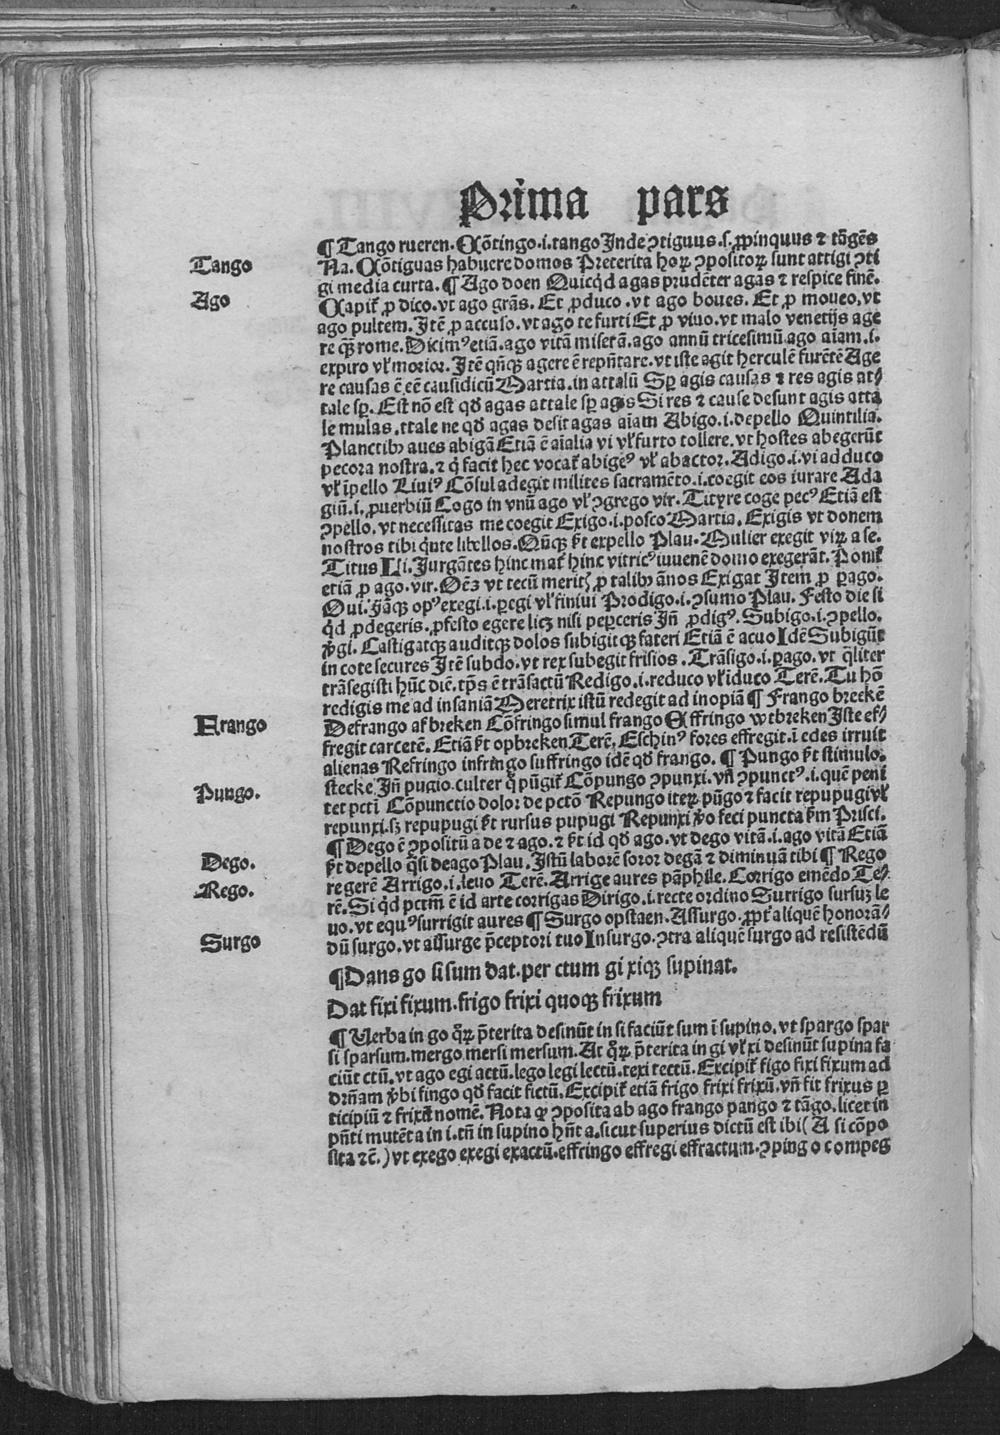 Prima pars
¶ Tango rueren. Cõtingo .i. tango Inde ↄtiguus .s. ꝓpinquus ⁊ tãgẽs
Tango
Na. Cõtiguas habuere domos Preterita hoꝝ ↄpositoꝝ sunt attigi ↄti
gi media curta. ¶ Ago doen Quicq̃d agas prudẽter agas ⁊ respice finẽ.
Ago
Capit̃ ꝓ dico. vt ago grãs. Et ꝓ duco .vt ago boues. Et ꝓ moueo, vt
ago pultem. Itẽ ꝓ accuso. vt ago te furti Et ꝓ viuo. vt malo venetijs age
re q̃ꝫ rome. Dicimꝰ etiã. ago vitã miserã. ago annũ tricesimũ ago aĩam .i.
expiro vl̃ morior. Itẽ qñqꝫ agere ẽ rep̃ntare. vt iste agit herculẽ furẽtẽ Age
re causas ẽ eẽ causidicũ Martia. in attalũ Sꝑ agis causas ⁊ res agis at⸗
tale sꝑ. Est nõ est qđ agas attale sꝑ agis Si res ⁊ cause desunt agis atta
le mulas. ttale ne qđ agas desit agas aĩam Abigo .i. depello Quintilia.
Planctibꝰ aues abigã Etiã ẽ aĩalia vi vl̃ furto tollere. vt hostes abegerũt
pecora nostra. ⁊ q̇ facit hec vocat̃ abigeꝰ vl̃ abactor. Adigo .i. vi adduco
vl̃ ĩpello Liuiꝰ Cõsul adegit milites sacramẽto .i. coegit eos iurare Ada
giũ .i. ꝓuerbiũ Cogo in vnũ ago vl̃ ↄgrego vir. Tityre coge pecꝰ Etiã est
ↄpello. vt necessitas me coegit Exigo .i. posco Martia. Exigis vt donem
nostros tibi q̇nte libellos. Qñqꝫ p̃t expello Plau. Mulier exegit viꝝ a se.
Titus Li. Jurgãtes hinc mat̃ hinc vitricꝰ iuuenẽ domo exegerãt. Ponit̃
etiã ꝓ ago. vir. Oẽꝫ vt tecũ meritꝭ ꝓ talibꝰ ãnos Exigat Item ꝓ ꝑago.
Oui. Jãqꝫ opꝰ exegi .i. ꝑegi vl̃ finiui Prodigo .i. ↄsumo Plau. Festo die si
q̇d ꝓdegeris. ꝓfesto egere licꝫ nisi peꝑceris Iñ ꝓdigꝰ. Subigo .i. ↄpello.
v̇gi. Castigatqꝫ auditqꝫ dolos subigitqꝫ fateri Etiã ẽ acuo Idẽ Subigũt
in cote secures Itẽ subdo. vt rex subegit frisios . Trãsigo .i. ꝑago. vt q̃liter
trãsegisti hũc diẽ. tp̃s ẽ trãsactũ Redigo .i. reduco vl̃ ĩduco Terẽ. Tu hõ
redigis me ad insaniã Meretrix istũ redegit ad inopiã ¶ Frango breekẽ
Frango
Defrango af breken Cõfringo simul frango Effringo wtbreken Iste ef⸗
fregit carcerẽ. Etiã p̃t opbreken Terẽ. Eschinꝰ fores effregit. ĩ edes irruit
alienas Refringo infringo suffringo idẽ qđ frango. ¶ Pungo p̃t stimulo.
stecke Iñ pugio. culter q̇ pũgit̃ Cõpungo ↄpunxi. vñ ↄpunctꝰ .i. quẽ peni
Pungo.
tet pcti Cõpunctio dolor de pctõ Repungo iteꝝ pũgo ⁊ facit repupugi vl̃
repunxi. sꝫ repupugi p̃t rursus pupugi Repunxi v̇o feci puncta ẜm Prisci.
¶ Dego ẽ ↄpositũ a de ⁊ ago. ⁊ p̃t id qđ ago. vt dego vitã .i. ago vitã Etiã
Dego.
p̃t depello q̃si deago Plau. Istũ laborẽ soror degã ⁊ diminuã tibi ¶ Rego
Rego.
regerẽ Arrigo .i. leuo Terẽ. Arrige aures pãphile. Corrigo emẽdo Te⸗
rẽ. Si q̇d pctm̃ ẽ id arte corrigas Dirigo .i. recte ordino Surrigo sursuꝫ le
uo. vt equꝰ surrigit aures ¶ Surgo opstaen. Assurgo. ꝓpt̃ aliquẽ honorã⸗
Surgo
dũ surgo. vt assurge p̃ceptori tuo Insurgo. ↄtra aliquẽ surgo ad resistẽdũ
¶ Dans go si sum dat. per ctum gi xiqꝫ supinat.
Dat fixi fixum. frigo frixi quoqꝫ frixum
¶ Uerba in go q̃ꝝ p̃terita desinũt in si faciũt sum ĩ supino. vt spargo spar
si sparsum. mergo mersi mersum. At q̃ꝝ p̃terita in gi vl̃ xi desinũt supina fa
ciũt ctũ. vt ago egi actũ. lego legi lectũ. texi tectũ. Excipit̃ figo fixi fixum ad
drñam v̇bi fingo qđ facit fictũ. Excipit̃ etiã frigo frixi frixũ. vñ fit frixus ꝑ
ticipiũ ⁊ frixũ nomẽ. Nota ꝙ ↄposita ab ago frango pango ⁊ tãgo. licet in
p̃nti mutẽt a in i. tñ in supino hñt a. sicut superius dictũ est ibi ( A si cõpo
sita ⁊c̃. ) vt exego exegi exactũ. effringo effregi effractum. ↄping o compeg